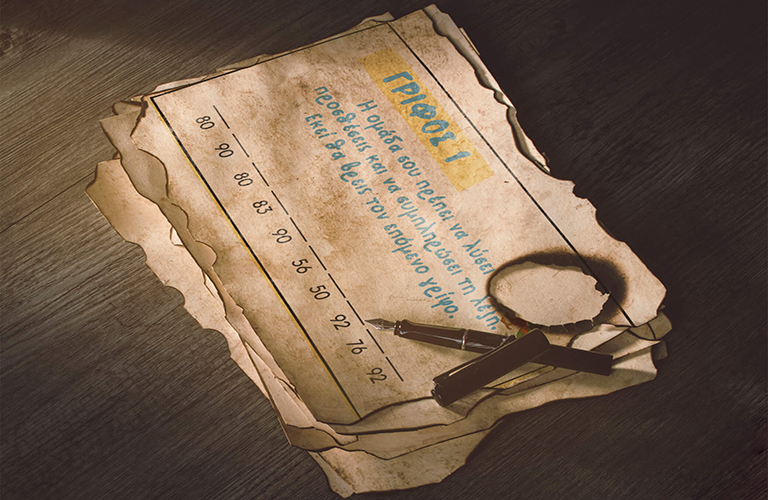 ΓΡΙΦΟΣ 1
Η ομάδα σου πρέπει να λύσει
προσθέσεις και να συμπληρώσει τη λέξη.
Εκεί θα βρεις τον επόμενο γρίφο.
80 90 80 83 90 56 50 92 76 92